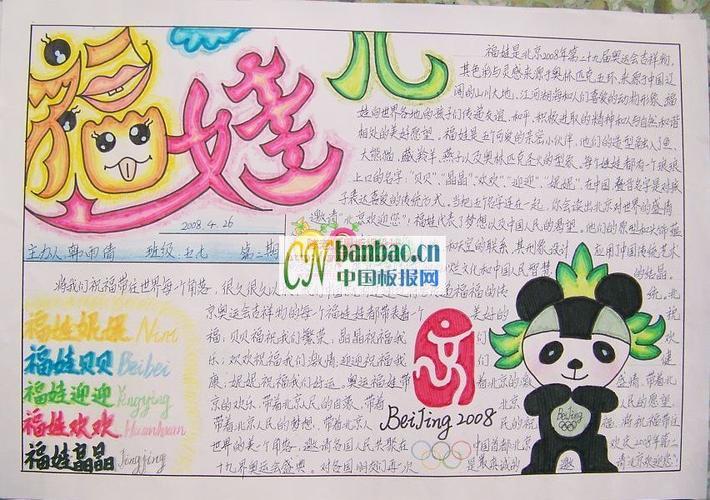 福娃儿
2008.4.26
主办人:韩雨倩 班级:五七 第二期
福娃是北京2008年第二十九届奥运会吉祥物,
其色彩与灵感来源于奥林匹克五环、来源于中国辽
阔的山川大地、江河湖海和人们喜爱的动物形象。福
娃向世界各地的孩子们传递友谊、和平、积极进取的精神和人与自然和谐
相处的美好愿望。福娃是五个可爱的亲密小伙伴,他们的造型融入了鱼、
大熊猫、藏羚羊、燕子以及奥林匹克圣火的形象。每个娃娃都有一个琅琅
上口的名字:"贝贝"、"晶晶"、"欢欢"、"迎迎"、"妮妮",在中国,叠音名字是对孩
子表达喜爱的传统方式。当把五个名字连在一起,你会读出北京对世界的盛情
邀请"北京欢迎您"。福娃代表了梦想以及中国人民的渴望。他们的原型和头饰蕴
的联系,其形象设计 应用了中国传统艺术
烂文化和中国人民智慧 的结晶。
CN banbao.cn
中国板报网
将我们祝福带往世界每个角落。很久很久以 递福的传 统,北
京奥运会吉祥物的每个福娃都带来着一个 美好的 祝
福:贝贝祝福我们繁荣,晶晶祝福我 们 欢
乐,欢欢祝福我们激情,迎迎祝福我 们 健
康,妮妮祝福我们好运。奥运福娃带 着北京的 盛情,带着北
京的欢乐,带着北京人民的自豪,带着 北京人 民的愿望,
带着北京人民的梦想,带着北京人 民的祝 福,将祝福带往
世界的每一个角落,邀请各国人民共聚在 中国首都北京 欢庆2008年第二
十九界奥运会盛典。对各国朋友们再一次 是最真诚的 邀 请"北京欢迎您"!
福娃妮妮 Nini
福娃贝贝 Beibei
福娃迎迎 Yingying
福娃欢欢 Huanhuan
福娃晶晶 Jingjing
BeiJing 2008
BeiJing